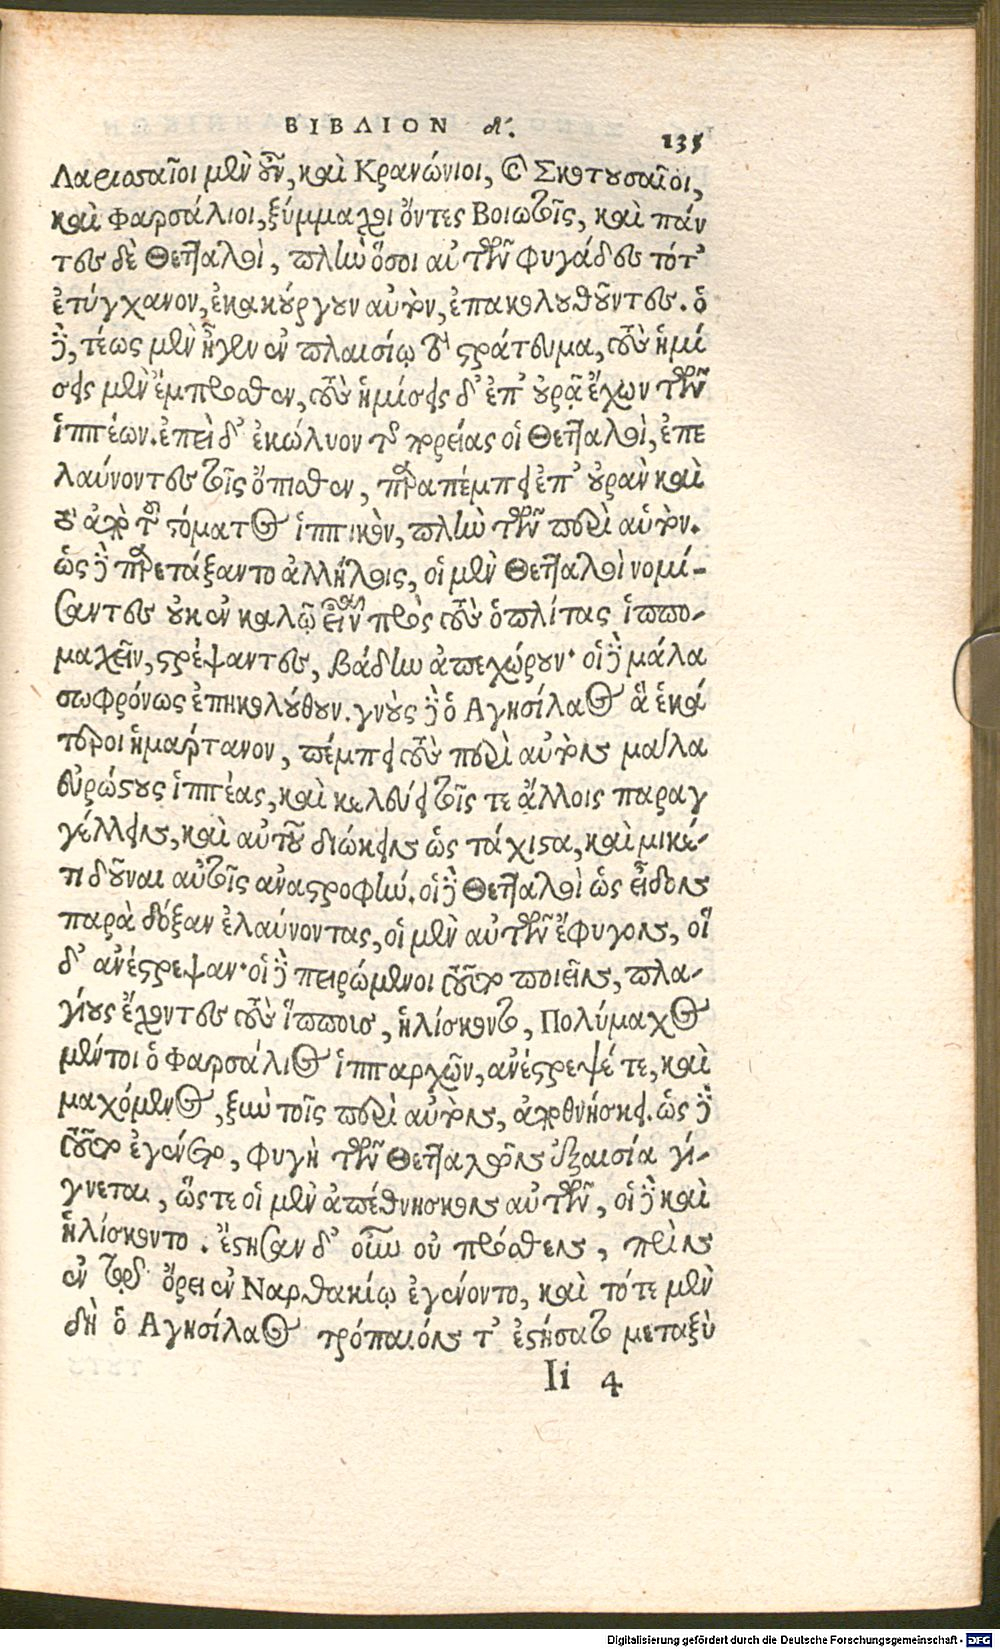 ΒΙΒΛΙΟΝ δ΄.
135
Λαρισσαῖοι μὲν οὖν, καὶ Κρανώνιοι, καὶ Σκοτουσαῖοι,
καὶ Φαρσάλιοι, ξύμμαχοι ὄντες Βοιωτοῖς, καὶ πάν
τες δὲ Θετταλοὶ, πλὴν ὅσοι αὐτῶν φυγάδες τότ'
ἐτύγχανον, ἐκακούργουν αὐτὸν, ἐπακολουθοῦντες. ὁ
δὲ, τέως μὲν ἦγεν ἐν πλαισίῳ τὸ στράτευμα, τοὺς ἡμί
σεις μὲν ἔμπροσθεν, τοὺς ἡμίσεις δ' ἐπ' οὐρᾷ ἔχων τῶν
ἱππέων. ἐπεὶ δ' ἐκώλυον τῆς πορείας οἱ Θετταλοὶ, ἐπε
λαύνοντες τοῖς ὄπισθεν, παραπέμπει ἐπ' οὐρὰν καὶ
τὸ ἀπὸ τοῦ στόματος ἱππικὸν, πλὴν τῶν περὶ αὑτὸν.
ὡς δὲ παρετάξαντο ἀλλήλοις, οἱ μὲν Θετταλοὶ νομί-
σαντες οὐκ ἐν καλῷ εἶναι πρὸς τοὺς ὁπλίτας ἱππο-
μαχεῖν, στρέψαντες, βάδην ἀπεχώρουν· οἱ δὲ μάλα
σωφρόνως ἐπηκολούθουν. γνοὺς δὲ ὁ Αγησίλαος ἃ ἑκά
τεροι ἡμάρτανον, πέμπει τοὺς περὶ αὐτὸν μάλα
εὐρώστους ἱππέας, καὶ κελεύει τοῖς τε ἄλλοις παραγ
γέλλειν, καὶ αὐτοὺ διώκειν ὡς τάχιστα, καὶ μικέ-
τι δοῦναι αὐτοῖς ἀναστροφήν. οἱ δὲ Θετταλοὶ ὡς εἶδον
παρὰ δόξαν ἐλαύνοντας, οἱ μὲν αὐτῶν ἔφυγον, οἳ
δ' ἀνέστρεψαν· οἱ δὲ πειρώμενοι τοῦτο ποιεῖν, πλα-
γίους ἔχοντες τοὺς ἵπποισ, ἡλίσκοντο, Πολύμαχος
μέντοι ὁ Φαρσάλιος ἱππαρχῶν, ἀνέστρεψέ τε, καὶ
μαχόμενος, ξὺν τοῖς περὶ αὐτὸν, ἀποθνήσκει. ὡς δὲ
τοῦτο ἐγένετο, φυγὴ τῶν Θετταλῶν ἐξαισία γί-
γνεται, ὥστε οἱ μὲν ἀπέθνησκον αὐτῶν, οἱ δὲ καὶ
ἡλίσκοντο. ἔστησαν δ' οὖν οὐ πρόσθεν, πρὶν
ἐν τῷ ὄρει ἐν Ναρθακίῳ ἐγένοντο, καὶ τότε μὲν
δὴ ὁ Αγησίλαος τρόπαιόν τ' ἐστήσατο μεταξὺ
Ii 4
Digitalisierung gefördert durch die Deutsche Forschungsgemeinschaft - DFG